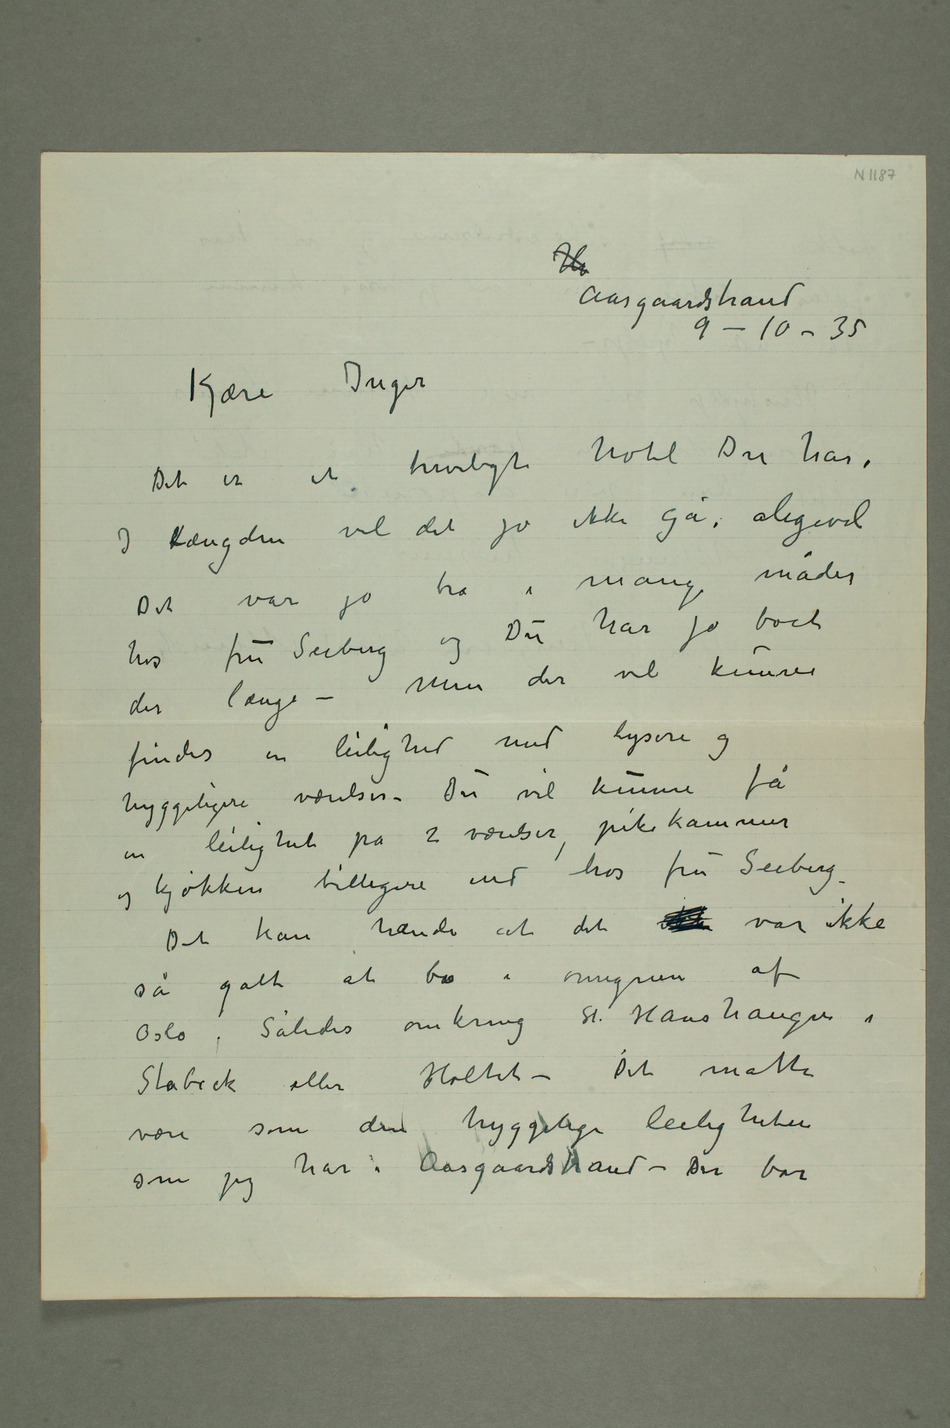 N 1187
Aasgaardstrand
9 – 10 – 35
Kjære Inger
Det er et hyveligt hotel Du har,
I længden vil det jo ikke gå, aligevel
Det var jo bra i mange måder
hos fru Seeberg og Du har jo boet
der længe – Men der vil kunne
findes en leilighed med lysere og
hyggeligere værelser – Du vil kunne få
en leilighet på 2 værelser, pikekammer
og kjøkken billigere end hos fru Seeberg.
Det kan hænde at det var ikke
så galt at bo i omegnen af
Oslo. Således omkring St. Hanshaugen i
Stabæk eller Holtet – Det måtte
være som den hyggelige leiligheten
som jeg har i Aasgaardstrand – Der bor